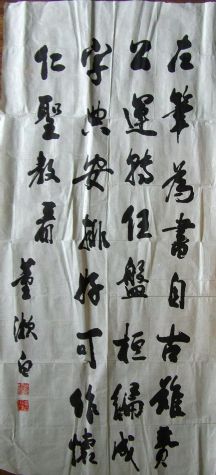 左筆為書自古難費
公運轉任盤桓編成
字典安排好可作懷
仁聖教看
董漱白